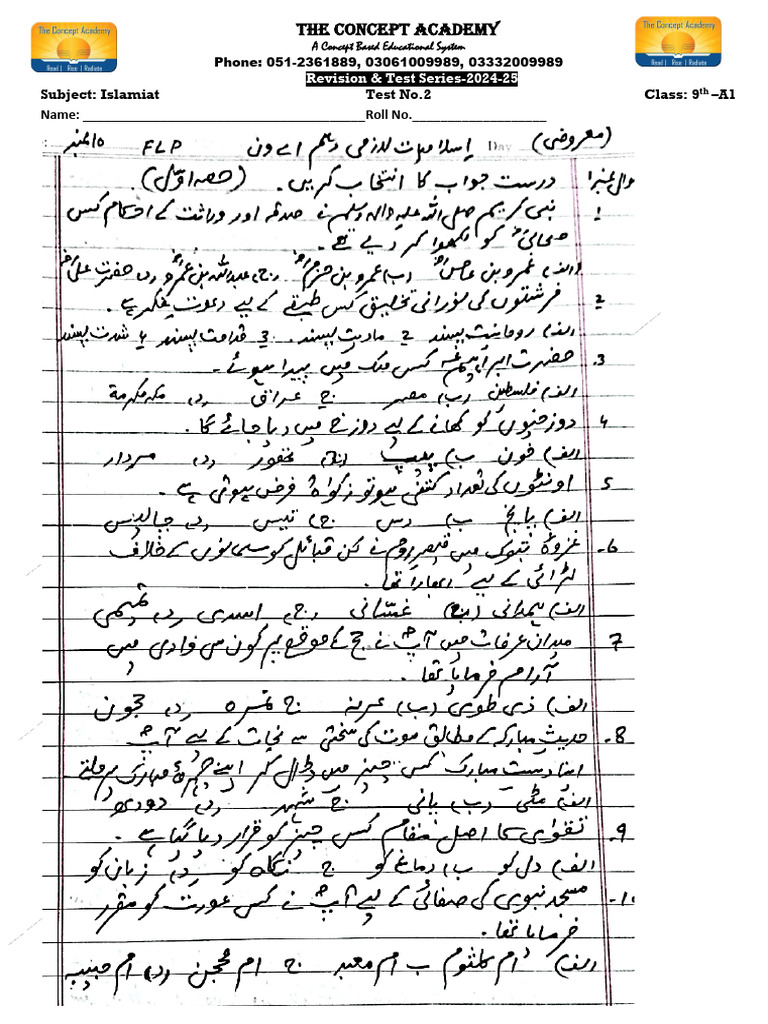 The Concept Academy
Read | Rise | Radiate
THE CONCEPT ACADEMY
A Concept Based Educational System
The Concept Academy
Read | Rise | Radiate
Phone: 051-2361889, 03061009989, 03332009989
Revision & Test Series-2024-25
Subject: Islamiat Test No.2 Class: 9th –A1
Name: Roll No.
(معروضی) اسلامیات لازمی نہم اے ون FLP ۱۰ نمبر
درست جواب کا انتخاب کریں۔ (حصہ اوّل)
1 نبی کریم صلی اللہ علیہ والہ وسلم نے صدقہ اور وراثت کے احکام کس
صحابیؓ کو لکھوا کر دیے تھے۔
(الف) عمرو بن عاصؓ (ب) عمرو بن حزمؓ (ج) عبداللہ بن عمروؓ (د) حضرت علیؓ
2 فرشتوں کی نورانی تخلیق کس طبقے کے لیے دعوت فکر ہے۔
الف) روحانیت پسند 2 مادیت پسند 3 قدامت پسند 4 شدت پسند
3. حضرت ابراہیمؑ کس ملک میں پیدا ہوئے۔
الف) فلسطین (ب) مصر ج عراق (د) مکہ مکرمۃ
4 دوزخیوں کو کھانے کے لیے دوزخ میں دیا جائے گا۔
الف) خون ب) پیپ (ج) تھور (د) مردار
5 اونٹوں کی تعداد کتنی ہو تو زکواۃ فرض ہوتی ہے۔
الف) پانچ ب) دس ج) تیس (د) چالیس
6. غزوہ تبوک میں قیصر روم نے کن قبائل کو مسلمانوں کے خلاف
لڑائی کے لیے ابھارا تھا۔
الف) ہمدانی (ب) غسّانی (ج) اسدی (د) تمیمی
7 میدان عرفات میں آپؐ نے حج کے موقع پر کون سی وادی میں
آرام فرمایا تھا۔
الف) ذی طویٰ (ب) عرنہ ج نمرہ (د) حجون
8. حدیث مبارکہ کے مطابق موت کی سختی سے نجات کے لیے آپؐ
اپنا دست مبارک کس چیز میں ڈال کر اپنے چہرۂ مبارک پر ملتے
الف) مٹی (ب) پانی ج شہد (د) دودھ
9. تقوٰی کا اصل مقام کس چیز کو قرار دیا گیا ہے۔
الف) دل کو ب) دماغ کو ج نگاہ کو (د) زبان کو
10. مسجد نبوی کی صفائی کے لیے آپؐ نے کس عورت کو مقرر
فرمایا تھا۔
الف) ام کلثوم ب ام معبد ج ام محجن (د) ام حبیبہ